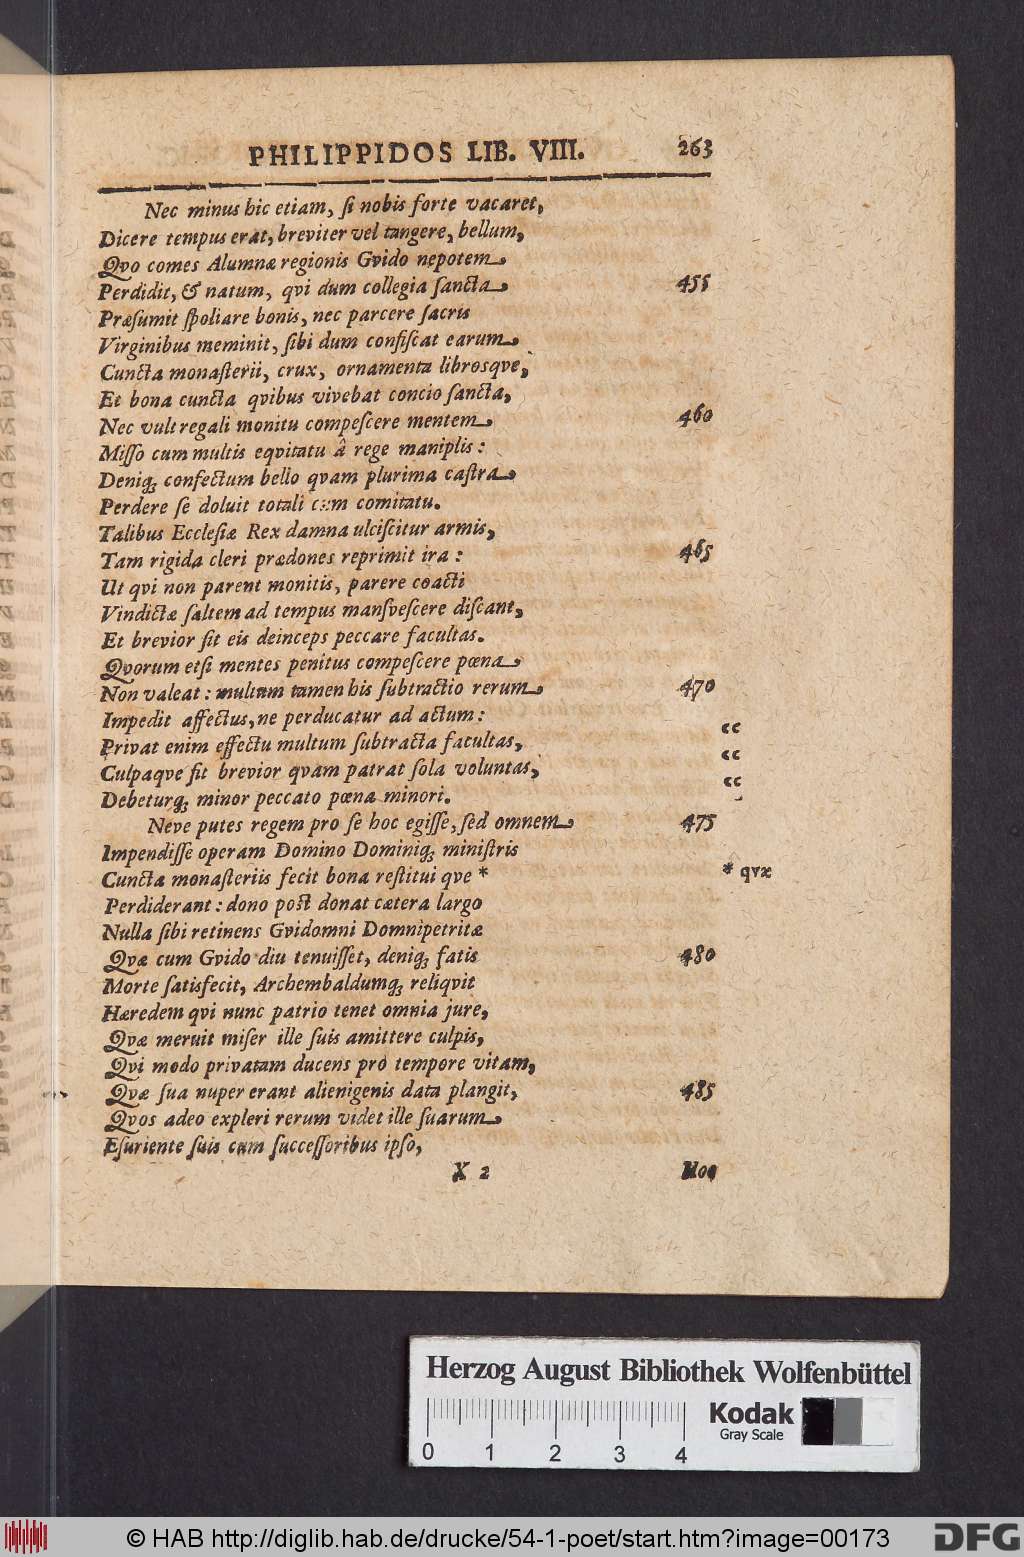 PHILIPPIDOS LIB. VIII. 263
Nec minus hic etiam, ſi nobis forte vacaret,
Dicere tempus erat, breviter vel tangere, bellum,
Qvo comes Alumnæ regionis Gvido nepotem
Perdidit, & natum, qvi dum collegia ſancta 455
Præſumit ſpoliare bonis, nec parcere ſacris
Virginibus meminit, ſibi dum confiſcat earum
Cuncta monaſterii, crux, ornamenta librosqve,
Et bona cuncta qvibus vivebat concio ſancta,
Nec vult regali monitu compeſcere mentem 460
Miſſo cum multis eqvitatu â rege maniplis:
Deniqꝫ confectum bello qvam plurima caſtra
Perdere ſe doluit totali cum comitatu.
Talibus Eccleſiæ Rex damna ulciſcitur armis,
Tam rigida cleri prædones reprimit ira: 465
Ut qvi non parent monitis, parere coacti
Vindictæ ſaltem ad tempus manſveſcere diſcant,
Et brevior ſit eis deinceps peccare facultas.
Qvorum etſi mentes penitus compeſcere pœna
Non valeat: multum tamen his ſubtractio rerum 470
Impedit affectus, ne perducatur ad actum:
Privat enim effectu multum ſubtracta facultas, “
Culpaqve fit brevior qvam patrat ſola voluntas, “
Debeturqꝫ minor peccato pœna minori. “
Neve putes regem pro ſe hoc egiſſe, ſed omnem 475
Impendiſſe operam Domino Dominiqꝫ miniſtris
Cuncta monaſteriis fecit bona reſtitui qve * * qvæ
Perdiderant: dono poſt donat cætera largo
Nulla ſibi retinens Gvidomni Domnipetritæ
Qvæ cum Gvido diu tenuiſſet, deniqꝫ fatis 480
Morte ſatisfecit, Archembaldumqꝫ reliqvit
Hæredem qvi nunc patrio tenet omnia jure,
Qvæ meruit miſer ille ſuis amittere culpis,
Qvi modo privatam ducens pro tempore vitam,
Qvæ ſua nuper erant alienigenis data plangit, 485
Qvos adeo expleri rerum videt ille ſuarum
Eſuriente ſuis cum ſucceſſoribus ipſo,
X 2
Herzog August Bibliothek Wolfenbüttel
0 1 2 3 4
Kodak
Gray Scale
© HAB http://diglib.hab.de/drucke/54-1-poet/start.htm?image=00173
DFG